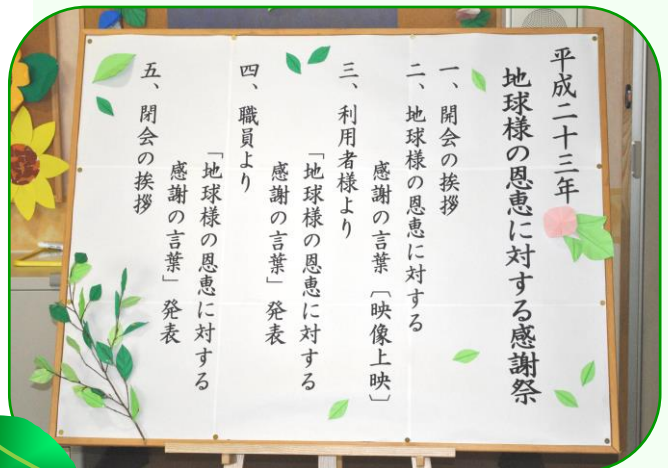 平成二十三年
地球様の恩恵に対する感謝祭
一、開会の挨拶
二、地球様の恩恵に対する
感謝の言葉〔映像上映〕
三、利用者様より
「地球様の恩恵に対する
感謝の言葉」発表
四、職員より
「地球様の恩恵に対する
感謝の言葉」発表
五、閉会の挨拶